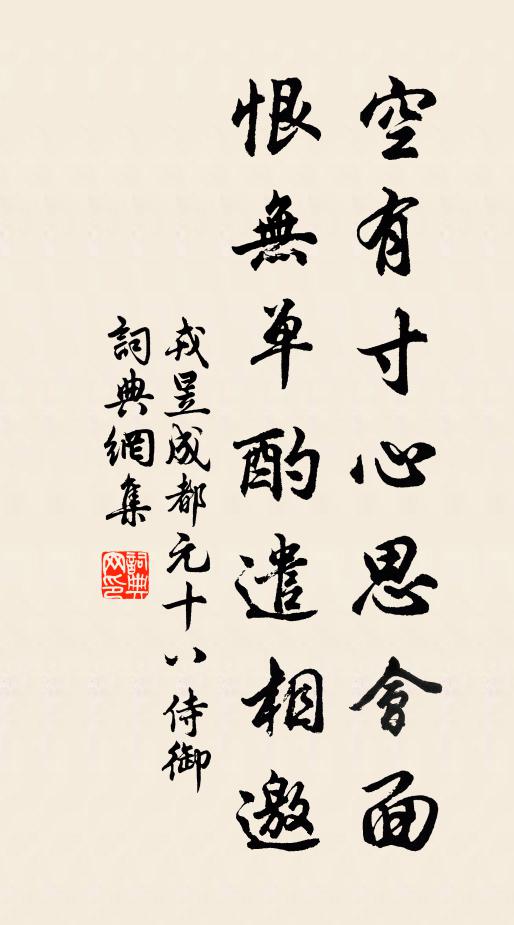 空有寸心思會面
恨無單酌遣相邀
戎昱成都元十八侍御
詞典網集
詞典
网印